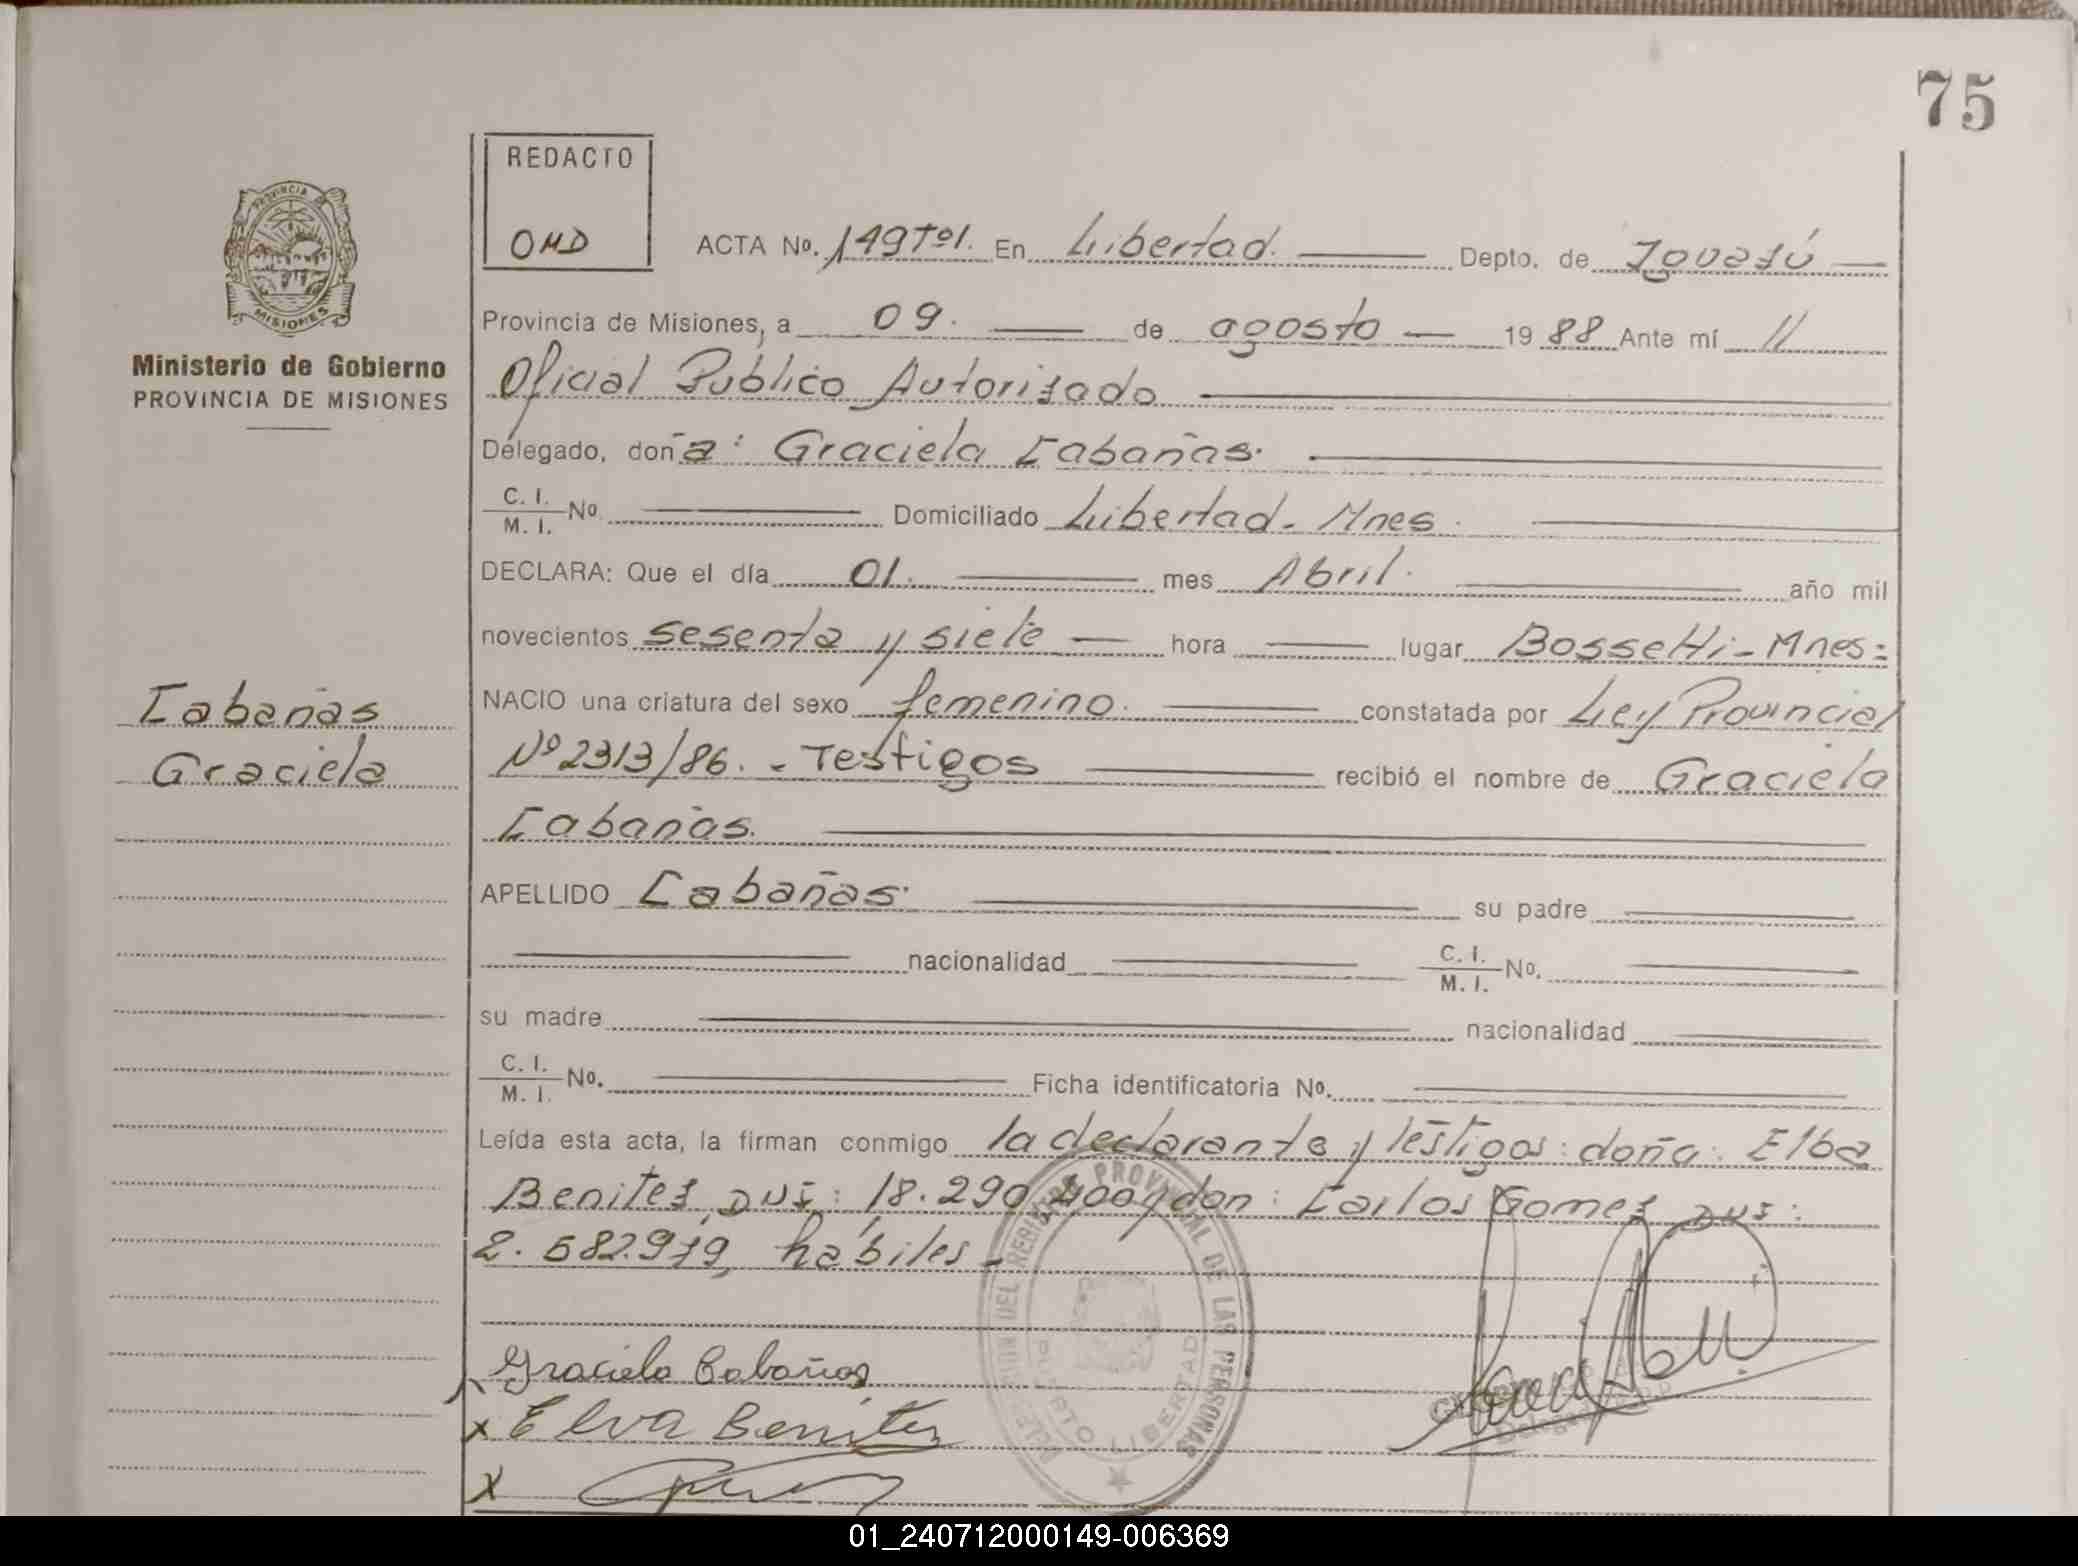 75
REDACTO
OMD
ACTA No. 149 Tº1. En Libertad. Depto. de Iguazú
PROVINCIA
MISIONES
Provincia de Misiones, a 09. de agosto 1988 Ante mí //
Ministerio de Gobierno
PROVINCIA DE MISIONES
Oficial Publico Autorizado
Delegado, doña: Graciela Cabañas.
C. I. / M. I. No. Domiciliado Libertad - Mnes.
DECLARA: Que el día 01. mes Abril. año mil
novecientos sesenta y siete hora lugar Bossetti - Mnes:
NACIO una criatura del sexo femenino. constatada por Ley Provincial
Cabañas
Graciela
Nº 2313/86. - Testigos recibió el nombre de Graciela
Cabañas.
APELLIDO Cabañas. su padre
nacionalidad C. I. / M. I. No.
su madre nacionalidad
C. I. / M. I. No. Ficha identificatoria No.
Leída esta acta, la firman conmigo la declarante y testigos: doña: Elba
Benitez, DNI: 18.290.400 y don: Carlos Gomez DNI:
2.582.979, hábiles -
DEL REGISTRO PROVINCIAL DE LAS PERSONAS
PUERTO LIBERTAD
Graciela Cabañas
x Elva Benitez
x
01_240712000149-006369